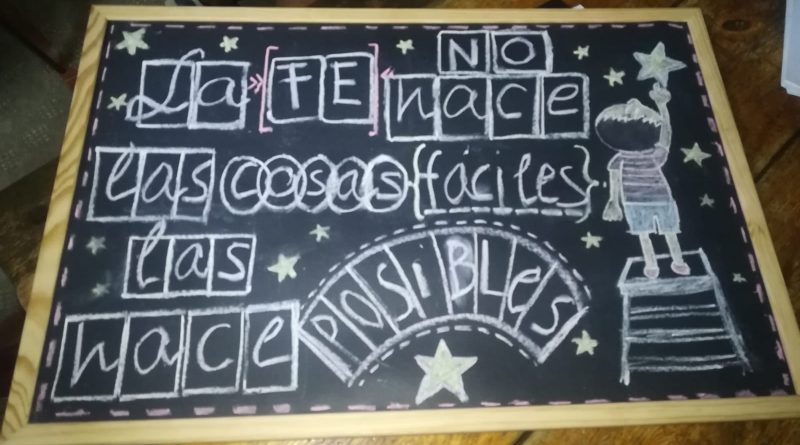 La »[FE]« NO hace
las cosas {fáciles}
las
hace POSIBLES